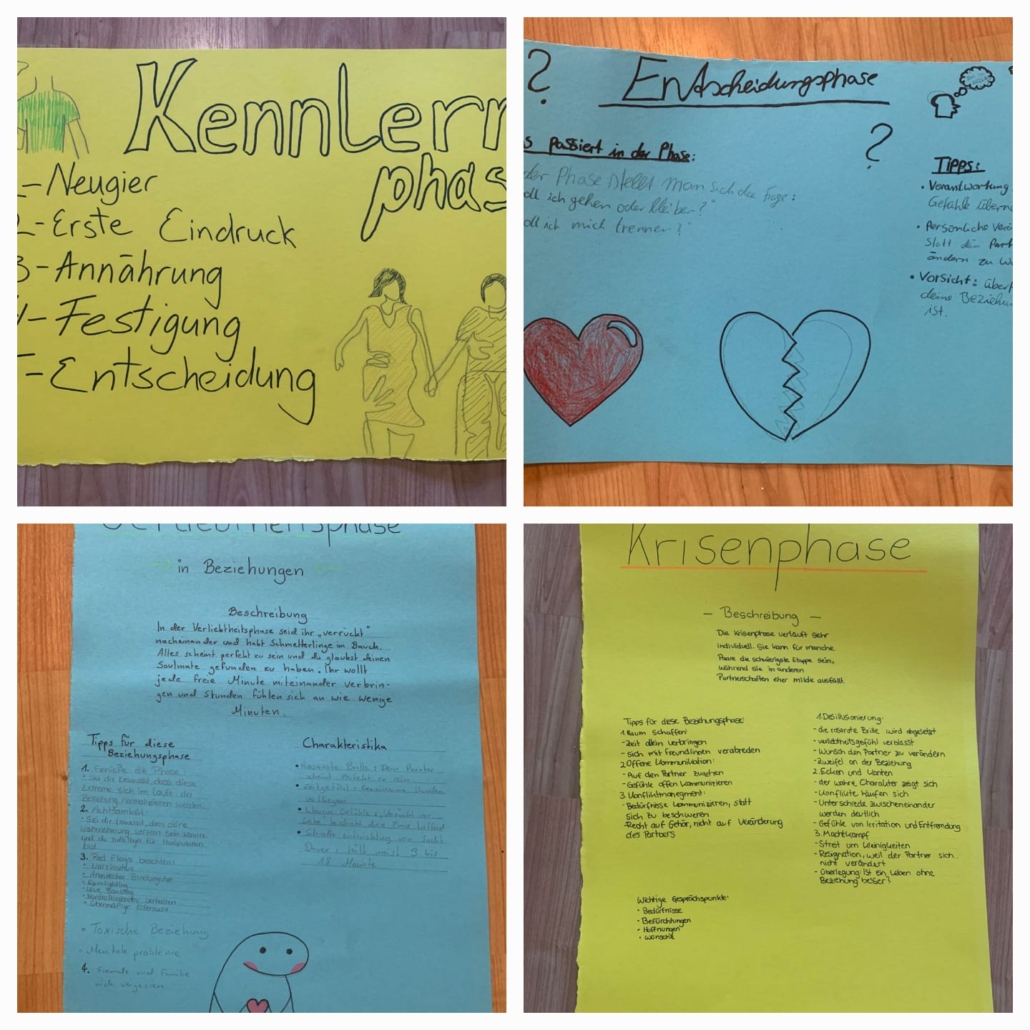 Kennlern
phas
-Neugier
-Erste Eindruck
3-Annährung
-Festigung
-Entscheidung
?
Entscheidungsphase
?
s passiert in der Phase:
der Phase stellt man sich die Frage:
oll ich gehen oder bleiben?"
oll ich mich trennen?"
TIPPS:
• Verantwortung
Gefühle übern
• Persönliche Verä
statt dein Part
ändern zu w
• Vorsicht: über
deine Beziehun
ist.
in Beziehungen
Beschreibung
In der Verliebtheitsphase seid ihr „verrückt"
nacheinander und habt Schmetterlinge im Bauch.
Alles scheint perfekt zu sein und du glaubst deinen
Soulmate gefunden zu haben. Ihr wollt
jede freie Minute miteinander verbrin-
gen und Stunden fühlen sich an wie wenige
Minuten.
Tipps für diese
Beziehungsphase
1. Genieße die Phase:
- Sei dir bewusst, dass diese
Extreme sich im Laufe der
Beziehung
2. Achtsamkeit:
- Sei dir bewusst, dass deine
Wahrnehmung verzerrt sein könnte
und du anfälliger für Manipulation
bist
3. Red Flags beachten:
- Narzissmus
- Love Bombing
- Kontrollierendes Verhalten
- Toxische Beziehung
- Mentale probleme
4. Freunde und Familie
nich vergessen
Charakteristika
• Rosarote Brille: Dein Partner
scheint perfekt zu sein
• Zeitgefühl: Gemeinsame Stunden
verfliegen
Dauer: hält meist 3 bis
18 Monate
Krisenphase
- Beschreibung -
Die Krisenphase verläuft sehr
individuell. Sie kann für manche
Paare die schwierigste Etappe sein,
während sie in anderen
Partnerschaften eher milde ausfällt
Tipps für diese Beziehungsphase:
1.Raum schaffen:
- Zeit allein verbringen
- sich mit Freund/innen verabreden
2.Offene Kommunikation:
- Auf den Partner zugehen
- Gefühle offen kommunizieren
3. Konfliktmanagment:
- Bedürfnisse kommunizieren, statt
sich zu beschweren
-Recht auf Gehör, nicht auf Veränderung
des Partners
Wichtige Gesprächspunkte:
- Bedürfnisse
- Befürchtungen
- Hoffnungen
- Wünsche
1.Desillusionierung:
- die rosarote Brille wird abgesetzt
- verliebtheitsgefühl verblasst
- Wunsch den Partner zu verändern
-Zweifel an der Beziehung
2.Ecken und Kanten
- der wahre, Charakter zeigt sich
- Konflikte häufen sich
- Unterschiede zwischeneinander
werden deutlich
- Gefühle von Irritation und Entfremdung
3. Machtkampf
- Streit um Kleinigkeiten
- Resignation, weil der Partner sich
nicht verändert
- Überlegung: Ist ein Leben ohne
Beziehung besser?